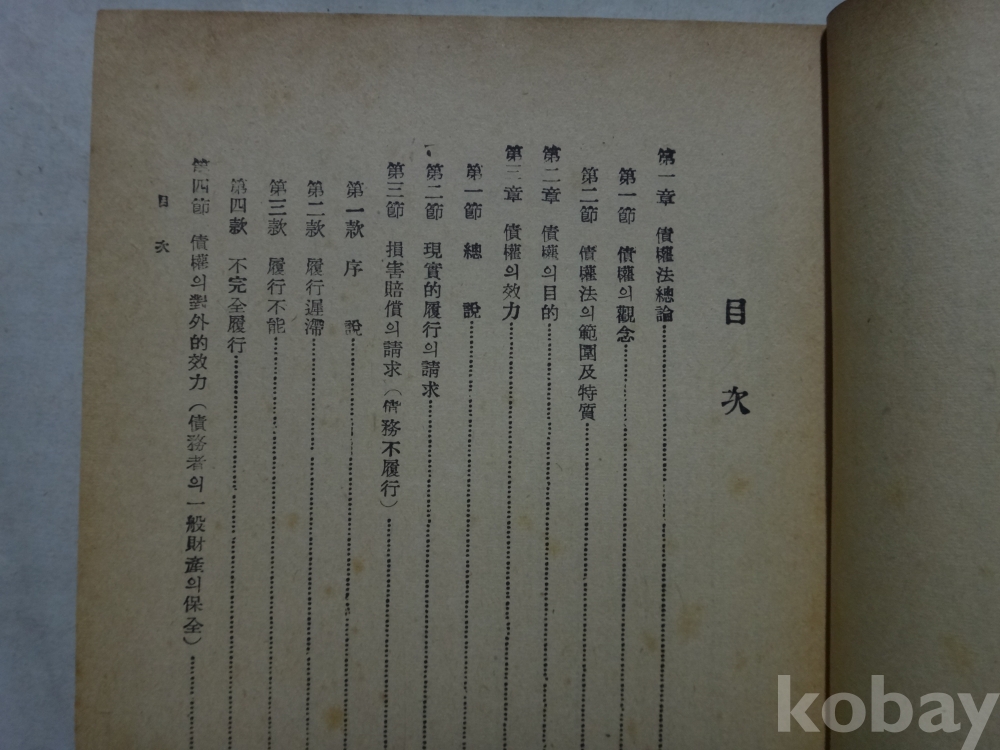 目次
第一章 債權法總論
第一節 債權의 觀念
第二節 債權法의 範圍及特質
第二章 債權의 目的
第三章 債權의 效力
第一節 總說
第二節 現實的 履行의 請求
第三節 損害賠償의 請求 (債務不履行)
第一款 序說
第二款 履行遲滯
第三款 履行不能
第四款 不完全履行
第四節 債權의 對外的 效力 (債務者의 一般財產의 保全)
目次
kobay